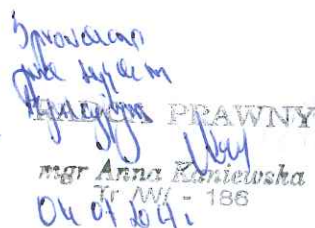 Sprawdzono
pod względem
RADCA PRAWNY
mgr Anna Kaniewska
Tr /W/ - 186
04 07 2014r.